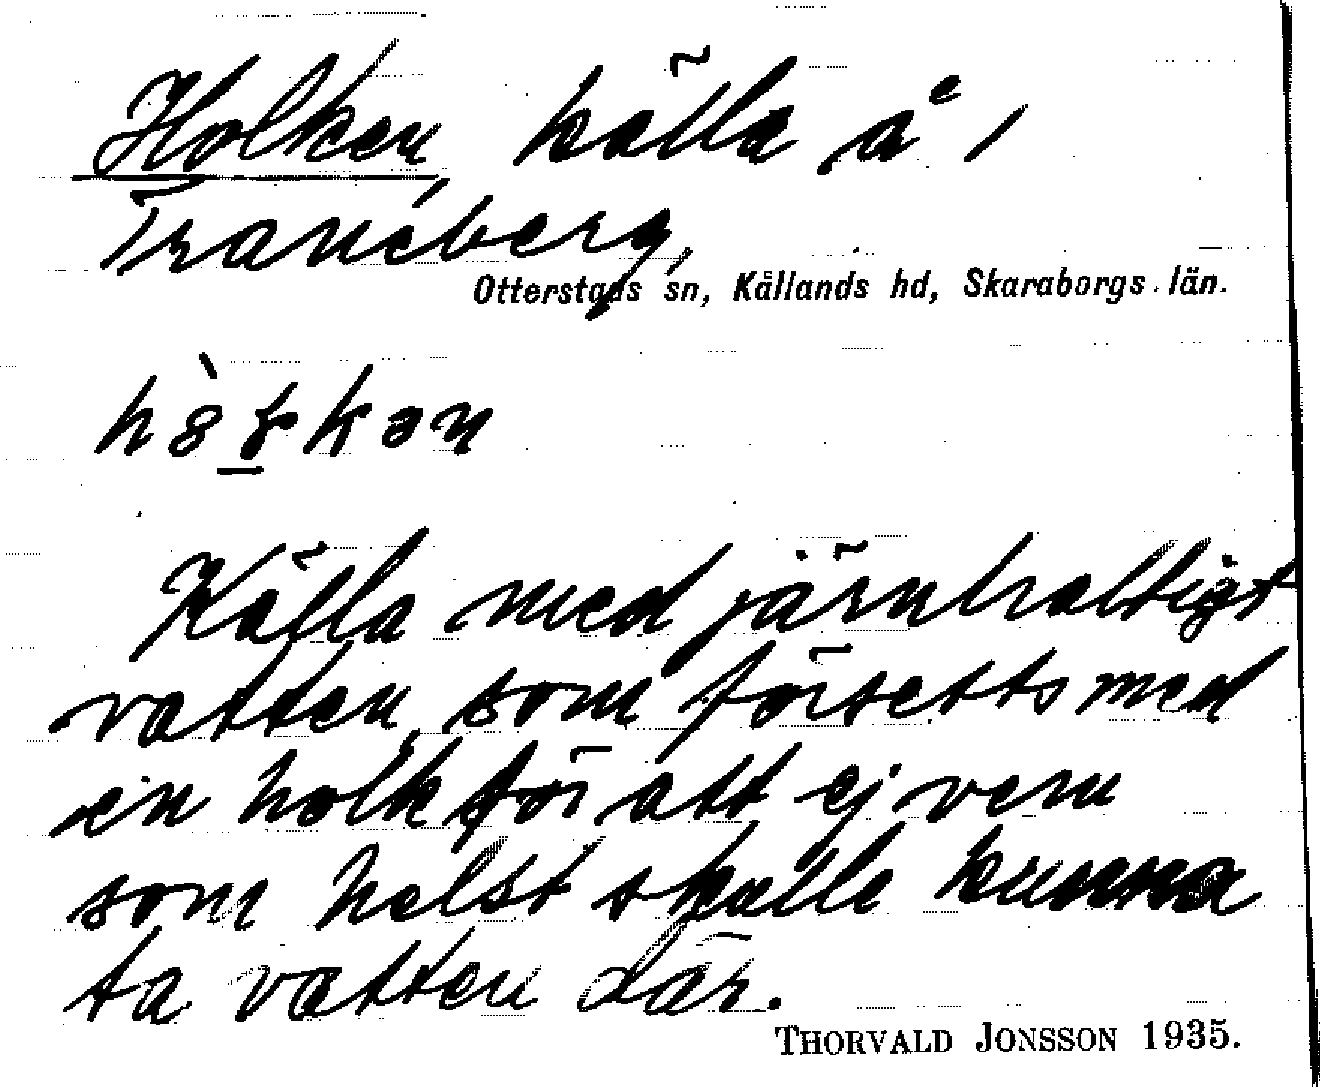 Holken källa å 1
Traneberg,
Otterstads sn, Kållands hd, Skaraborgs län.
Källa med järnhaltigt
vatten, som försetts med
en holk för att ej vem
som helst skulle kunna
ta vatten där.
THORVALD JONSSON 1935.